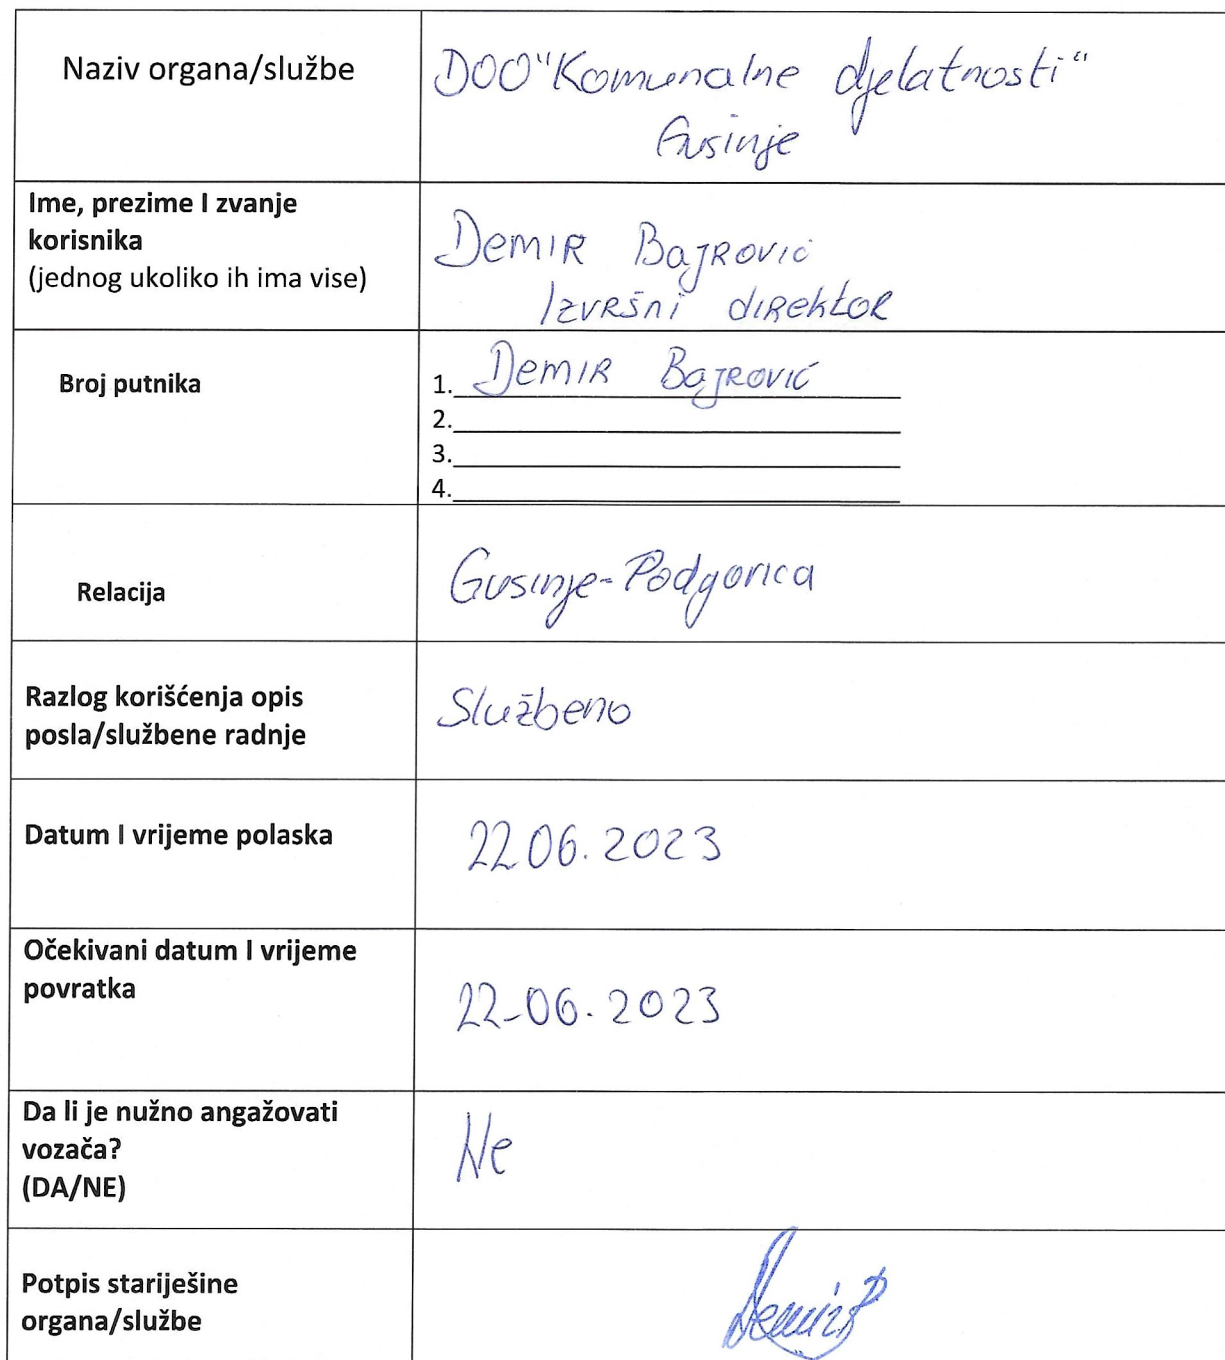 Naziv organa/službe
DOO "Komunalne djelatnosti"
Gusinje
Ime, prezime I zvanje
korisnika
(jednog ukoliko ih ima vise)
Demir Bajrović
Izvršni direktor
Broj putnika
1. Demir Bajrović
2.
3.
4.
Relacija
Gusinje-Podgorica
Razlog korišćenja opis
posla/službene radnje
Službeno
Datum I vrijeme polaska
22.06.2023
Očekivani datum I vrijeme
povratka
22-06.2023
Da li je nužno angažovati
vozača?
(DA/NE)
Ne
Potpis starješine
organa/službe
Demir B